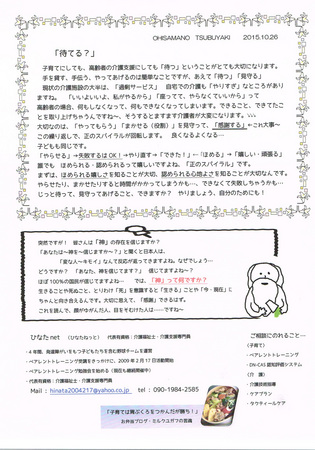 OHISAMANO TSUBUYAKI 2015.10.26
「待てる？」
子育てにしても、高齢者の介護支援にしても「待つ」ということがとても大切になります。
手を貸す、手伝う、やってあげるのは簡単なことですが、あえて「待つ」「見守る」
現状の介護施設の大半は、「過剰サービス」 自宅での介護も「やりすぎ」なところがあり
ますね。 「いいよいいよ、私がやるから」「座ってて、やらなくていいから」って
高齢者の場合、何もしなくなって、何もできなくなってしまいます。できること、できてたこ
とを取り上げちゃうんですね～、そうするとますます介護者が大変になります。
大切なのは、「やってもらう」「まかせる（役割）」を見守って、「感謝する」←これ大事～
この繰り返しで、正のスパイラルが回転します。 良くなるよくなる…
子どもも同じです。
「やらせる」→失敗するはOK！→やり直す→「できた！」→「ほめる」→「嬉しい・頑張る」
誰でも ほめられる・認められるって嬉しいですよね。「正のスパイラル」です。
まずは、ほめられ嬉しさを知ることが大切、認められる心地よさを知ることが大切なんです。
やらせたり、まかせたりすると時間がかかってしまうかも…、できなくて失敗しちゃうかも…
じっと待って、見守ってあげること、できますか？ やりましょう、自分のためにも！
突然ですが！ 皆さんは「神」の存在を信じますか？
「あなたは～神を～信じますか～？」と聞くと日本人は、
「変な人～キモイ」なんて反応が返ってきますよね。なぜでしょう…
どうですか？ 「あなた、神を信じてます？」 信じてますよね～？
ほぼ100％の国民が信じてますよね… では、「神」って何ですか？
生きることや死ぬこと、とりわけ「死」を意識すると「生きる」ことや「今・現在」に
ちゃんと向き合えるんです。大切に思えて、「感謝」できるはず。
これを読んで、顔がゆがんだ人、目をそむけた人は…ですね～
ひなたnet （ひなたねっと） 代表有資格：介護福祉士・介護支援専門員
・ペアレントトレーニング勉強会を始める（現在も継続開催中）
・代表有資格：介護福祉士・介護支援専門員
Mail：hinata2004217@yahoo.co.jp tel：090-1984-2585
「子育ては胃ぶくろをつかんだが勝ち！」
お弁当ブログ・ミルクユガフの音風
ご相談にのれること…
（子育て）
・ペアレントトレーニング
・DN-CAS 認知評価システム
（介 護）
・介護技術指導
・ケアプラン
・タクティールケア